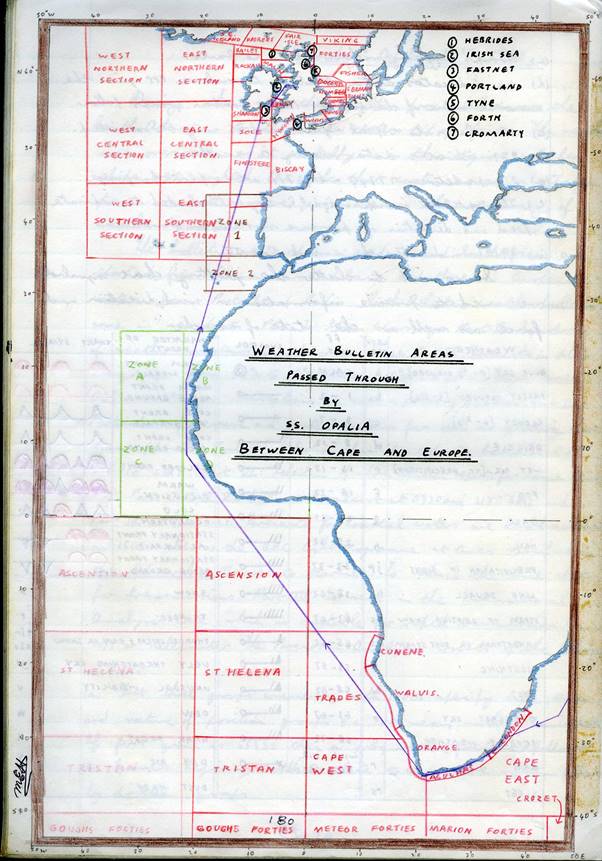 50°W 40 30 20 10 0 10 20 30 40 50°E
① HEBRIDES
② IRISH SEA
③ FASTNET
④ PORTLAND
⑤ TYNE
⑥ FORTH
⑦ CROMARTY
FAIR ISLE
VIKING
BAILEY
FORTIES
ROCKALL
FISHER
DOGGER
SHANNON
SOLE
FINISTERE
BISCAY
N60°
50
40
30
WEST
NORTHERN
SECTION
EAST
NORTHERN
SECTION
WEST
CENTRAL
SECTION
EAST
CENTRAL
SECTION
WEST
SOUTHERN
SECTION
EAST
SOUTHERN
SECTION
ZONE
1
ZONE 2
ZONE
A
ZONE
B
ZONE
C
ZONE
D
WEATHER BULLETIN AREAS
PASSED THROUGH
BY
SS. OPALIA
BETWEEN CAPE AND EUROPE.
ASCENSION
ASCENSION
ST HELENA
ST. HELENA
TRADES
CUNENE.
WALVIS.
TRISTAN
TRISTAN
CAPE
WEST
ORANGE
AGULHAS
CAPE
EAST
CROZET
GOUGHS FORTIES
GOUGHS FORTIES
180
METEOR FORTIES
MARION FORTIES